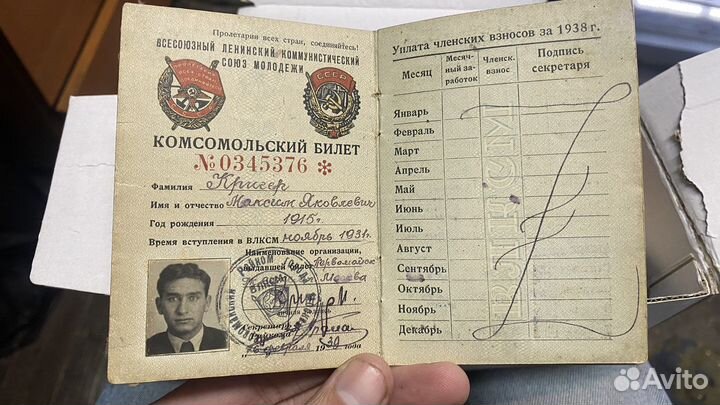 Пролетарии всех стран, соединяйтесь!
ВСЕСОЮЗНЫЙ ЛЕНИНСКИЙ КОММУНИСТИЧЕСКИЙ
СОЮЗ МОЛОДЕЖИ
СССР
КОМСОМОЛЬСКИЙ БИЛЕТ
№0345376 *
Фамилия Кригер
Имя и отчество Максим Яковлевич
Год рождения 1915г.
Время вступления в ВЛКСМ ноябрь 1931г.
Наименование организации,
выдавшей билет Первомайск
ВЛКСМ
личная подпись
Секретарь
Райкома
февраля 1939 года
Уплата членских взносов за 1938 г.
Месяц
Месячный заработок
Членск. взнос
Подпись секретаря
Январь
Февраль
Март
Апрель
Май
Июнь
Июль
Август
Сентябрь
Октябрь
Ноябрь
Декабрь
ВЛКСМ
Avito